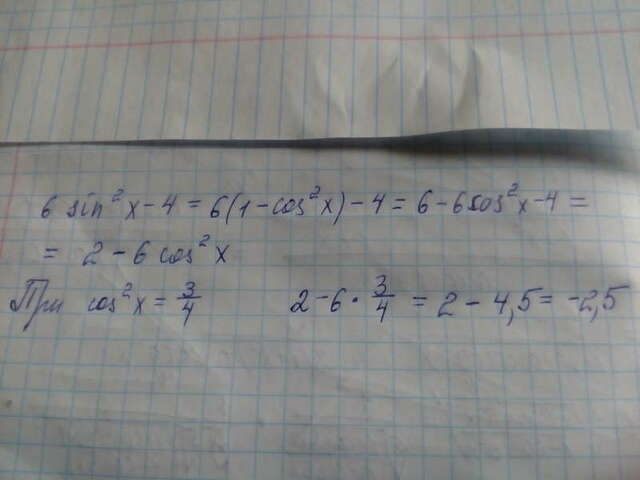 6 sin²x - 4 = 6(1 - cos²x) - 4 = 6 - 6cos²x - 4 =
= 2 - 6 cos²x
При cos²x = 3/4 2 - 6 · 3/4 = 2 - 4,5 = -2,5